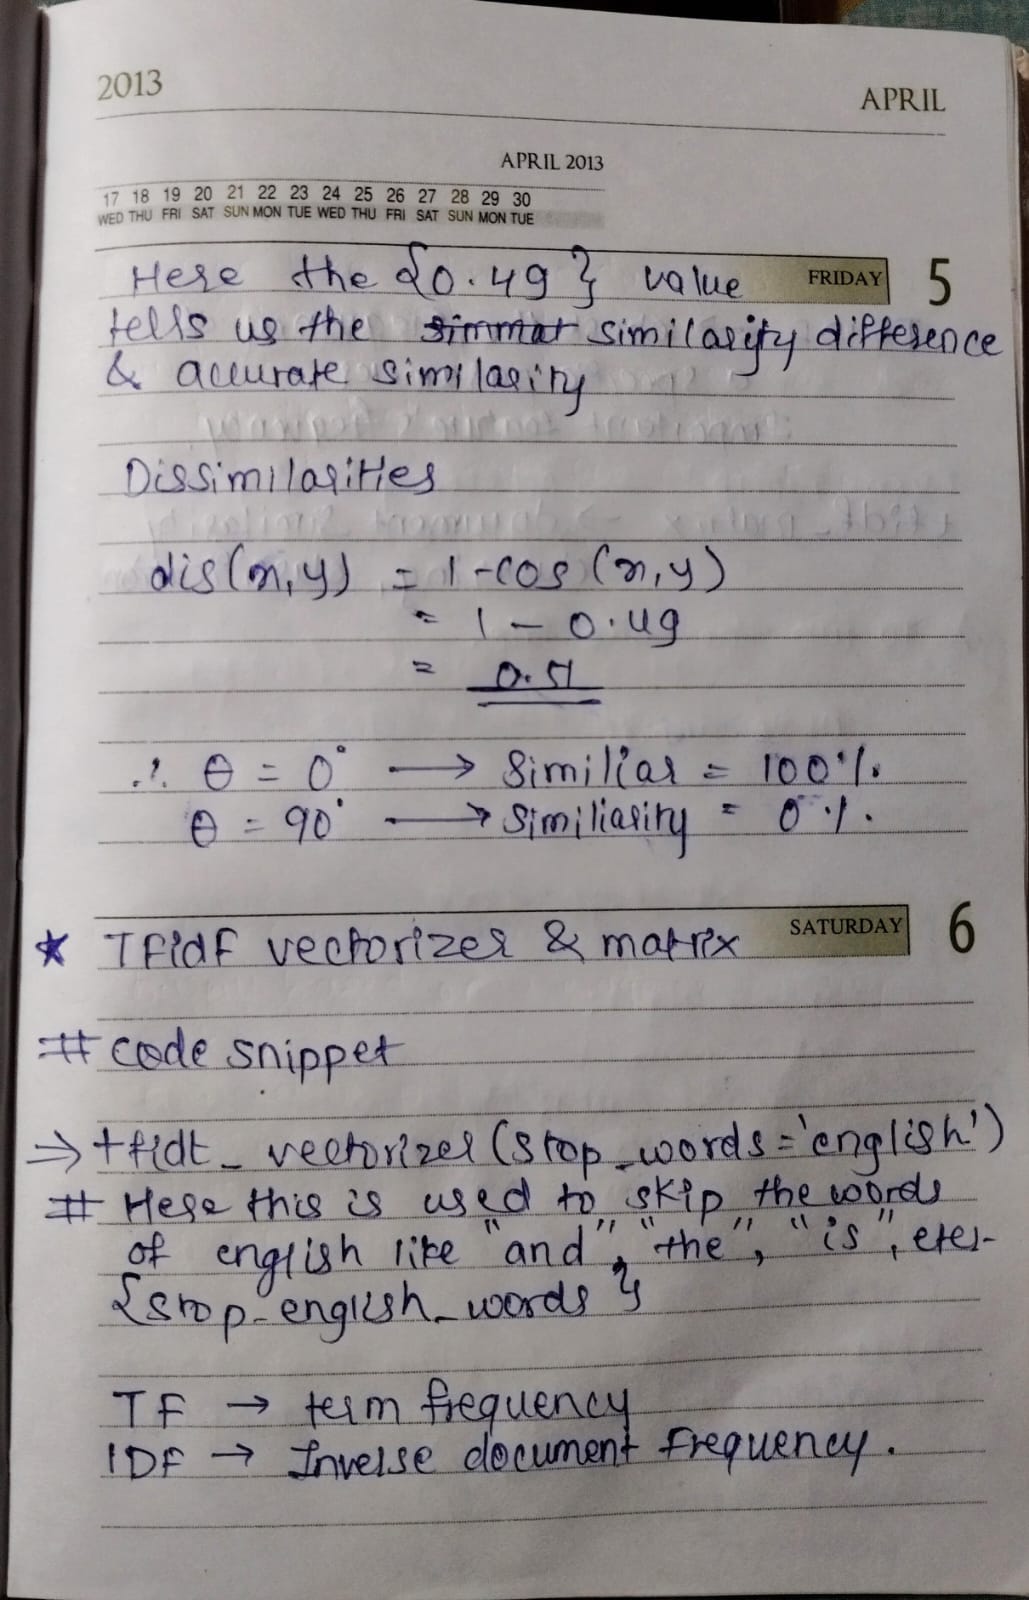 2013
APRIL
APRIL 2013
17 18 19 20 21 22 23 24 25 26 27 28 29 30
WED THU FRI SAT SUN MON TUE WED THU FRI SAT SUN MON TUE
FRIDAY 5
Here the {0.49} value
tells us the simmat similarity difference
& accurate similarity
Dissimilarities
dis(x,y) = 1-cos(x,y)
= 1 - 0.49
= 0.51
∴ θ = 0° → Similiar = 100%.
θ = 90° → Similiarity = 0%.
SATURDAY 6
★ TFidF vectorizer & matrix
# code snippet
⇒ tfidt_vectorizer(stop_words='english')
# Here this is used to skip the words
of english like "and", "the", "is", etc.
{stop_english_words}
TF → term frequency
IDF → Inverse document frequency.